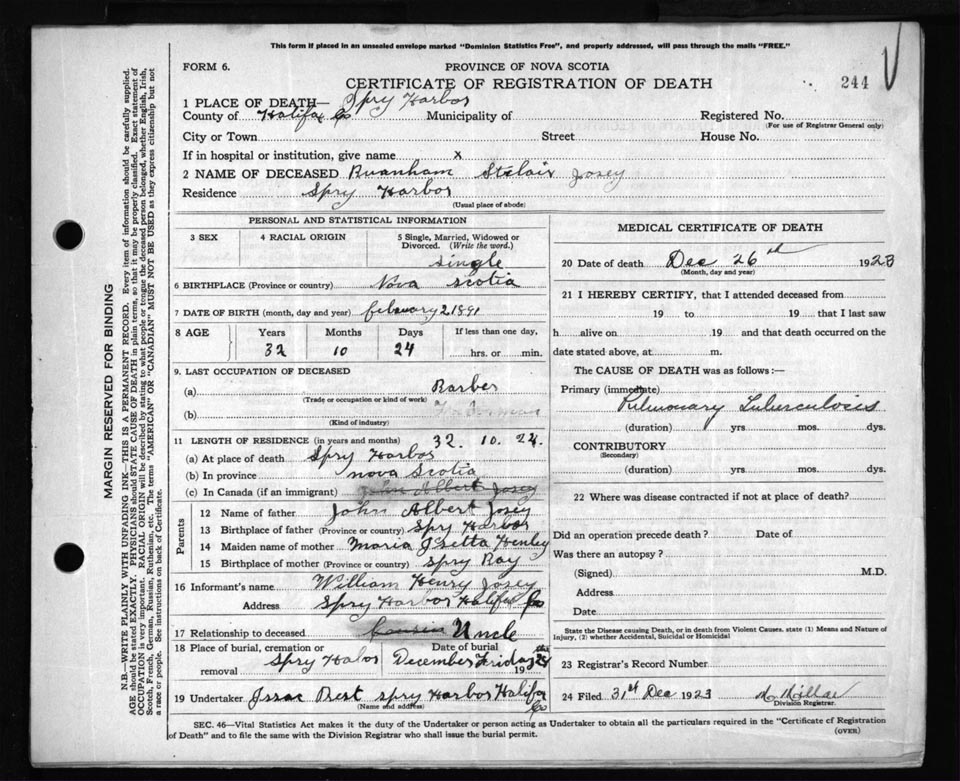 This form if placed in an unsealed envelope marked "Dominion Statistics Free", and properly addressed, will pass through the mails "FREE."
FORM 6.
PROVINCE OF NOVA SCOTIA
CERTIFICATE OF REGISTRATION OF DEATH
244
1 PLACE OF DEATH— Spry Harbor
County of Halifax Co Municipality of Registered No.
(For use of Registrar General only)
City or Town Street House No.
If in hospital or institution, give name x
2 NAME OF DECEASED Josey
Residence Spry Harbor
(Usual place of abode)
PERSONAL AND STATISTICAL INFORMATION
3 SEX 4 RACIAL ORIGIN 5 Single, Married, Widowed or Divorced. (Write the word.)
single
6 BIRTHPLACE (Province or country) Nova Scotia
7 DATE OF BIRTH (month, day and year) february 2 1891
8 AGE Years Months Days If less than one day,
32 10 24 hrs. or min.
9. LAST OCCUPATION OF DECEASED
(a) Barber
(Trade or occupation or kind of work)
(b)
(Kind of industry)
11 LENGTH OF RESIDENCE (in years and months) 32. 10. 24.
(a) At place of death Spry Harbor
(b) In province nova Scotia
(c) In Canada (if an immigrant) John Albert Josey
Parents
12 Name of father John Albert Josey
13 Birthplace of father (Province or country) Spry Harbor
14 Maiden name of mother Maria Henley
15 Birthplace of mother (Province or country) Spry Bay
16 Informant's name William Henry Josey
Address Spry Harbor Halifax Co
17 Relationship to deceased cousin Uncle
18 Place of burial, cremation or removal Spry Date of burial December Friday 19
19 Undertaker Issac Best spry Harbor Halifax Co
(Name and address)
MEDICAL CERTIFICATE OF DEATH
20 Date of death Dec 26th 1923
(Month, day and year)
21 I HEREBY CERTIFY, that I attended deceased from
19 to 19 that I last saw
h alive on 19 and that death occurred on the
date stated above, at m.
The CAUSE OF DEATH was as follows:—
Primary (immediate)
Pulmonary Tuberculosis
(duration) yrs mos. dys.
CONTRIBUTORY
(Secondary)
(duration) yrs. mos. dys.
22 Where was disease contracted if not at place of death?
Did an operation precede death? Date of
Was there an autopsy?
(Signed) M.D.
Address
Date
State the Disease causing Death, or in death from Violent Causes, state (1) Means and Nature of Injury, (2) whether Accidental, Suicidal or Homicidal
23 Registrar's Record Number
24 Filed 31st Dec 1923
Division Registrar.
SEC. 46—Vital Statistics Act makes it the duty of the Undertaker or person acting as Undertaker to obtain all the particulars required in the "Certificate of Registration
of Death" and to file the same with the Division Registrar who shall issue the burial permit.
(OVER)
MARGIN RESERVED FOR BINDING
N.B.—WRITE PLAINLY WITH UNFADING INK—THIS IS A PERMANENT RECORD. Every item of information should be carefully supplied.
AGE should be stated EXACTLY. PHYSICIANS should STATE CAUSE OF DEATH in plain terms, so that it may be properly classified. Exact statement of
OCCUPATION is very important. RACIAL ORIGIN will be described by stating to what people or tongue the deceased person belonged, whether English, Irish,
Scotch, French, German, Russian, Ruthenian, etc. The terms "AMERICAN" OR "CANADIAN" MUST NOT BE USED as they express citizenship but not
a race or people. See instructions on back of Certificate.